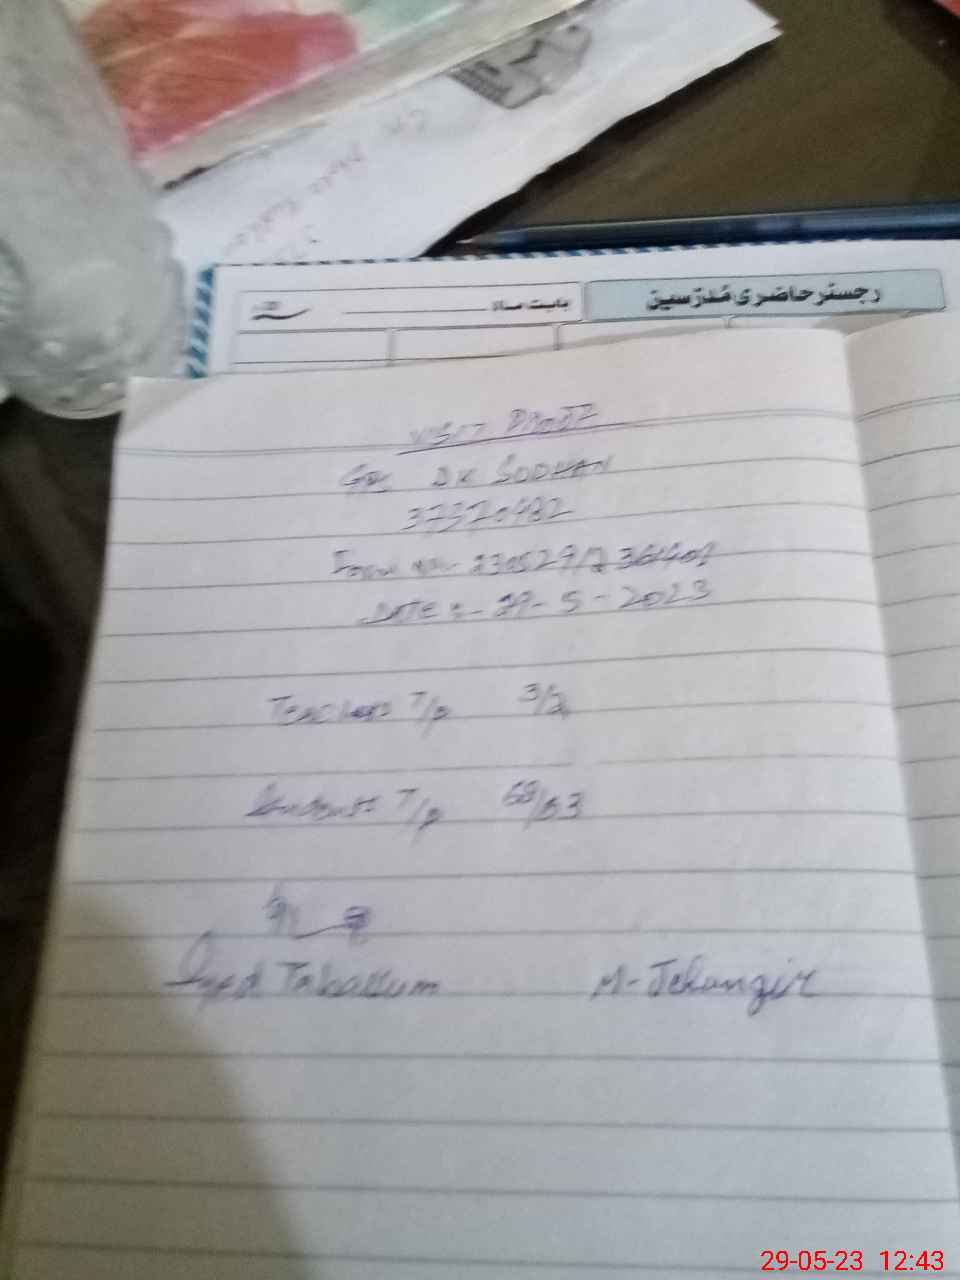 رجسٹر حاضری مُدرّسین
بابت سالـ
VISIT PROOF
GPS DK SODHAN
37370482
DATE :- 29-5-2023
Teachers T/P 3/2
Students T/P 68/53
Syed Taballum M-Jehangir
29-05-23 12:43